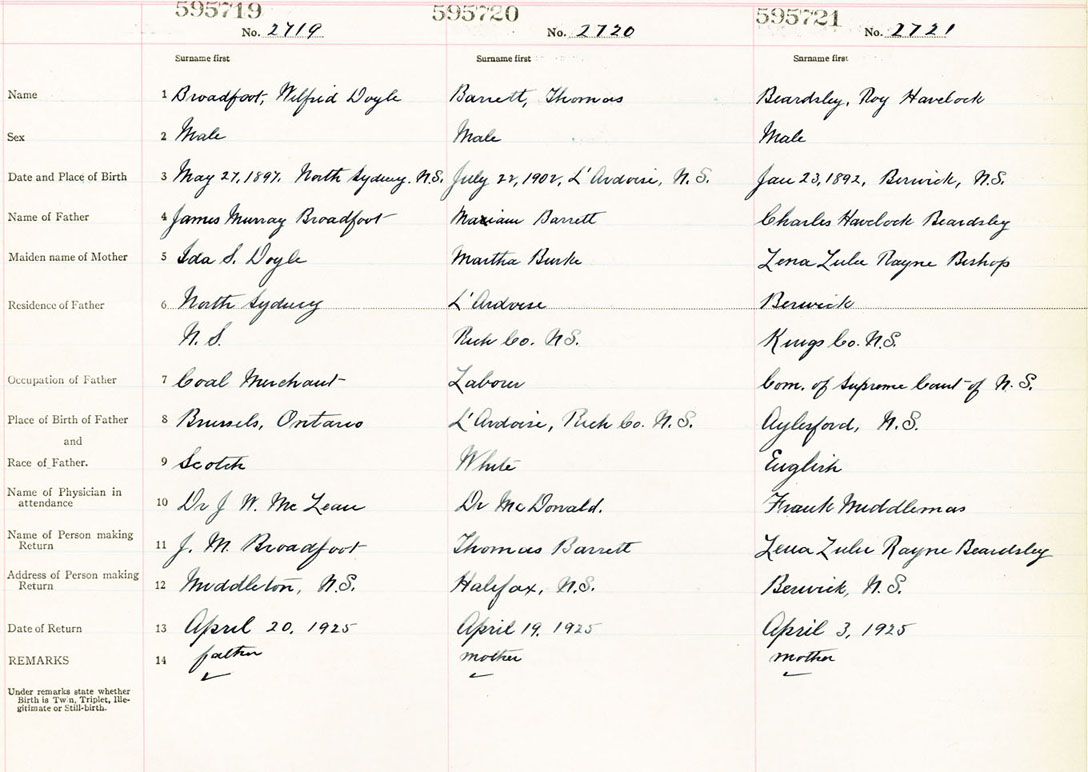 595719 595720 595721
No. 2719 No. 2720 No. 2721
Surname first Surname first Surname first
Name 1 Broadfoot, Wilfrid Doyle Barrett, Thomas Beardsley, Roy Havelock
Sex 2 Male Male Male
Date and Place of Birth 3 May 27, 1897. North Sydney. N.S. July 22, 1902, L'Ardoise, N.S. Jan 23, 1892, Berwick, N.S.
Name of Father 4 James Murray Broadfoot Barrett Charles Havelock Beardsley
Maiden name of Mother 5 Ida S. Doyle Martha Burke Lena Lulu Rayne Bishop
Residence of Father 6 North Sydney L'Ardoise Berwick
N.S. Rich Co. N.S. Kings Co. N.S.
Occupation of Father 7 Coal Merchant Laborer Com. of Supreme Court of N.S.
Place of Birth of Father 8 Brussels, Ontario L'Ardoise, Rich Co. N.S. Aylesford, N.S.
and
Race of Father. 9 Scotch White English
Name of Physician in
attendance 10 Dr J. W. McLean Dr McDonald. Frank Middlemas
Name of Person making
Return 11 J. M. Broadfoot Thomas Barrett Lena Lulu Rayne Beardsley
Address of Person making
Return 12 Middleton, N.S. Halifax, N.S. Berwick, N.S.
Date of Return 13 April 20, 1925 April 19, 1925 April 3, 1925
REMARKS 14 father mother mother
Under remarks state whether
Birth is Twin, Triplet, Ille-
gitimate or Still-birth.